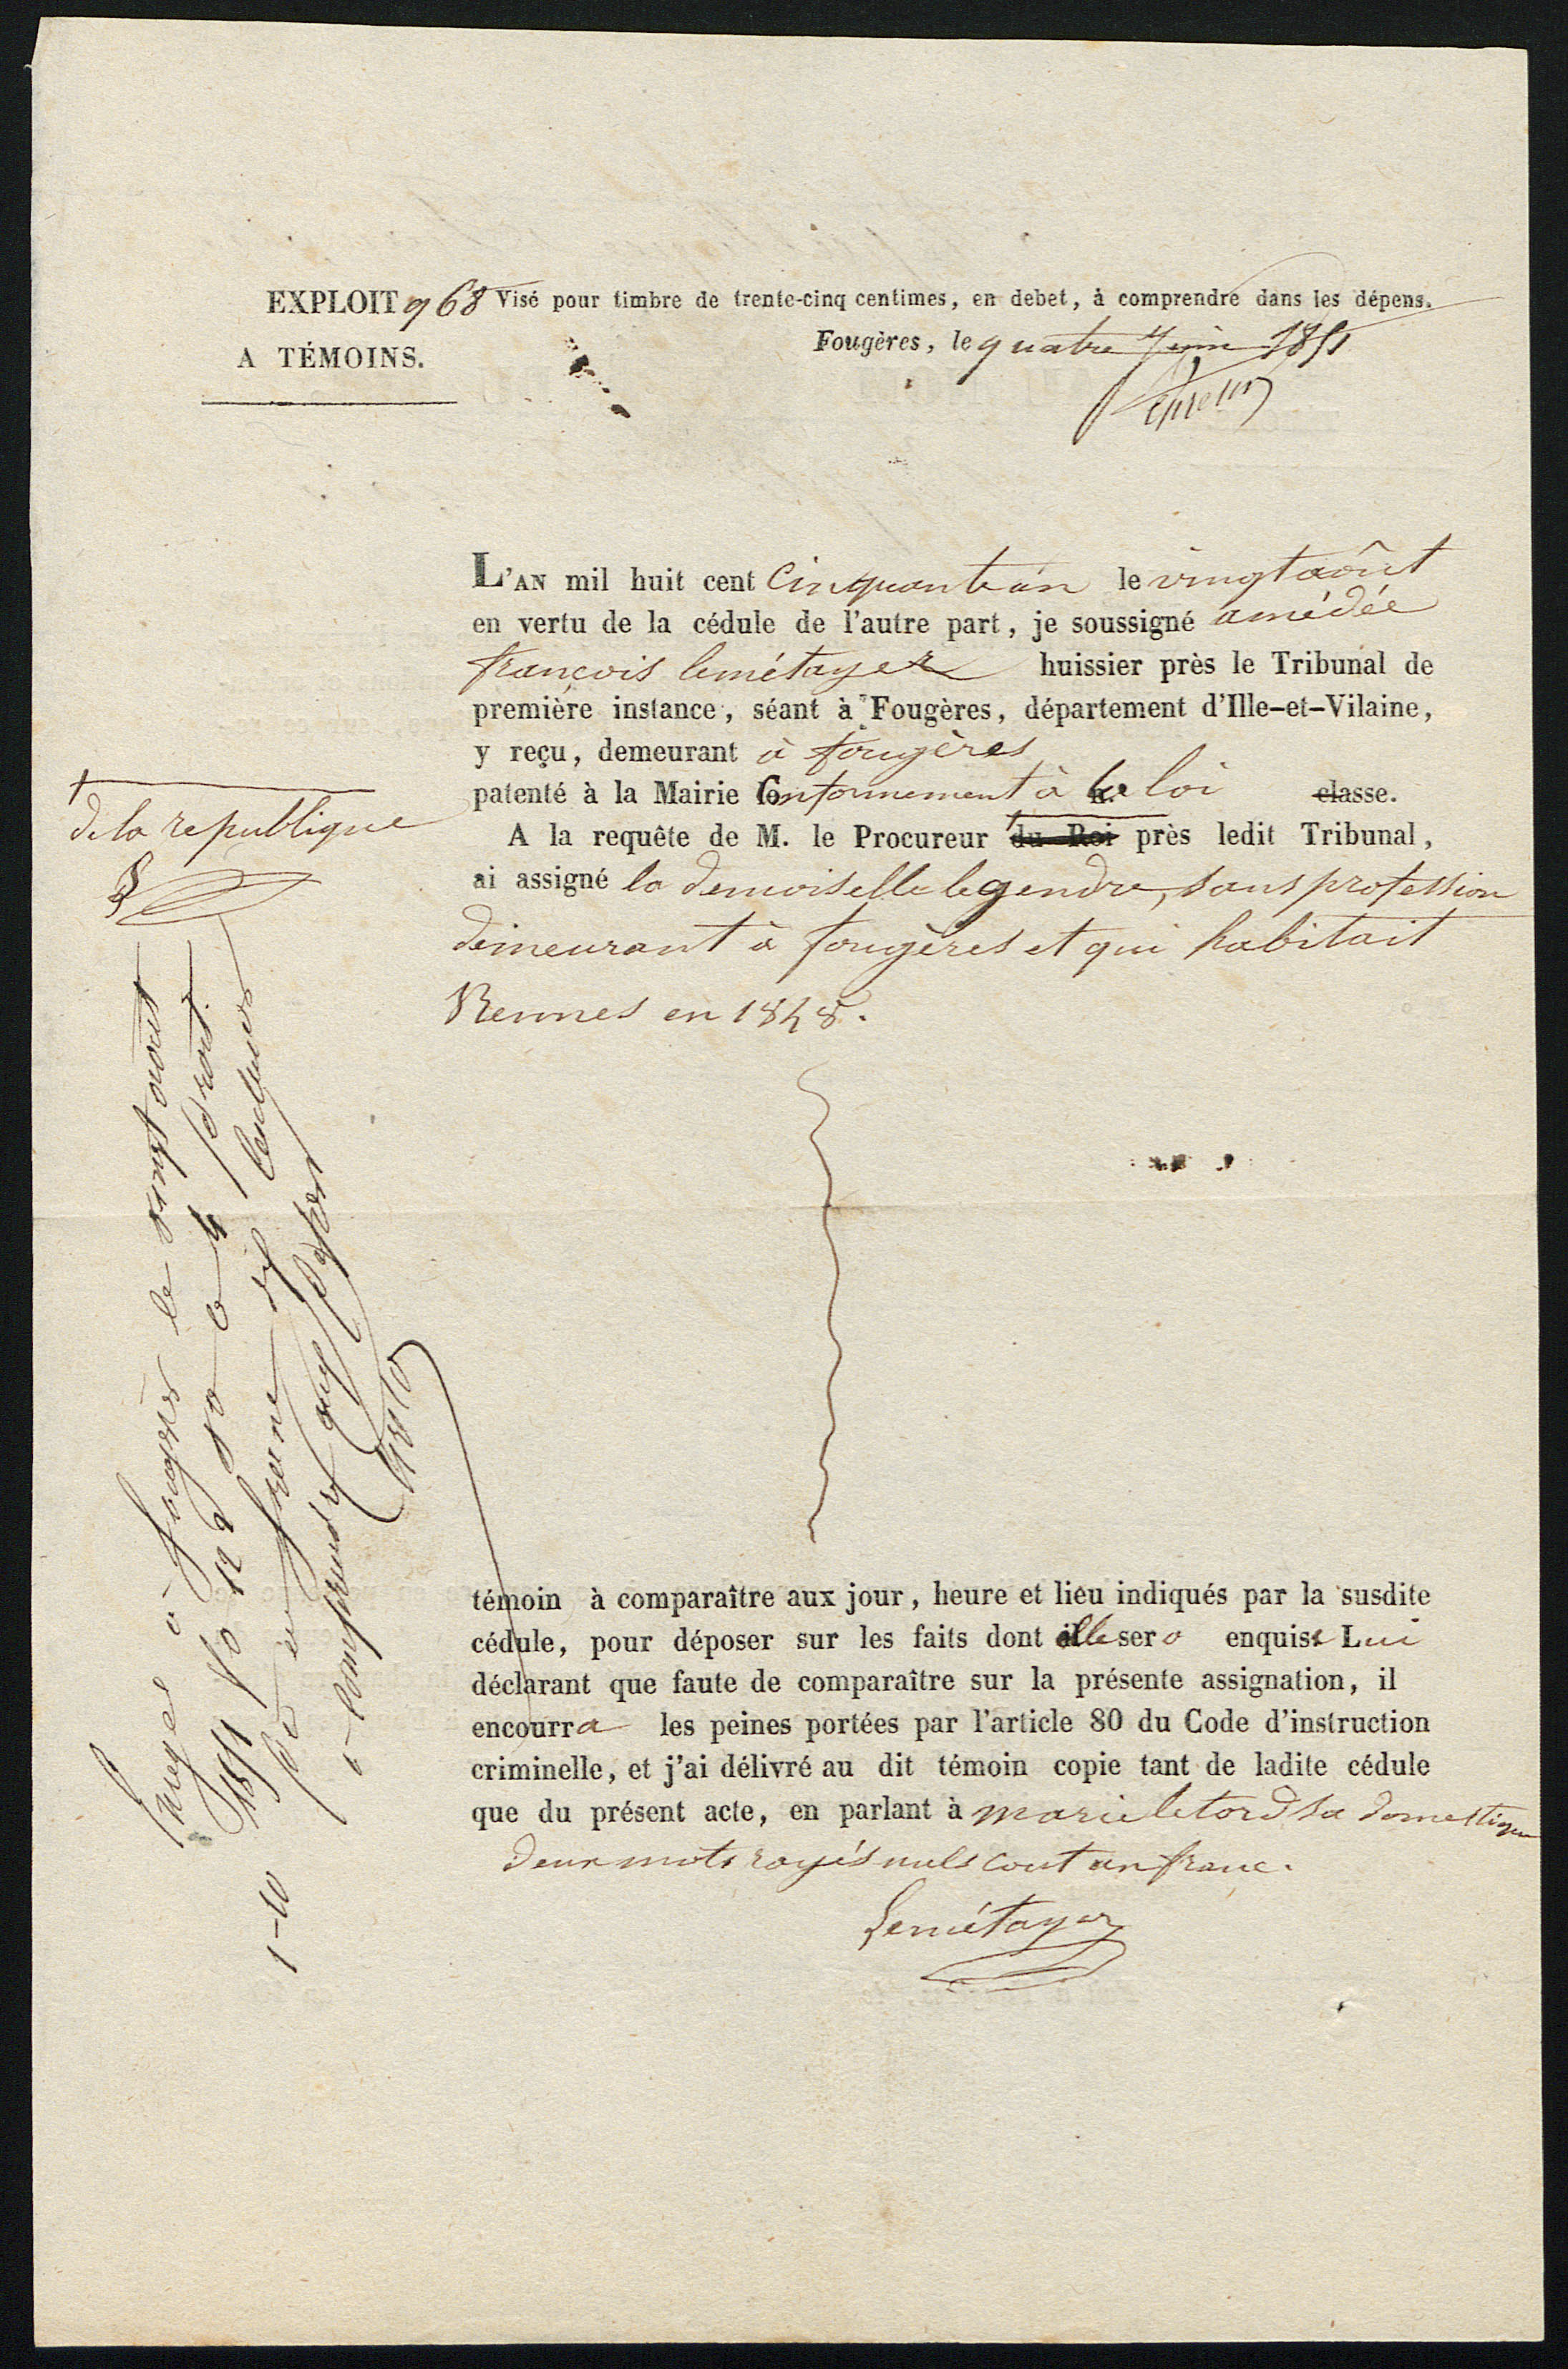 EXPLOIT 968 Visé pour timbre de trente-cinq centimes, en debet, à comprendre dans les dépens.
A TÉMOINS.
Fougères, le quatre Juin 1851
L'AN mil huit cent Cinquante un le vingt août
en vertu de la cédule de l'autre part, je soussigné amédée
françois lemétayer huissier près le Tribunal de
première instance, séant à Fougères, département d'Ille-et-Vilaine,
y reçu, demeurant à fougères
patenté à la Mairie Conformement à la loi classe.
de la republique
A la requête de M. le Procureur du Roi près ledit Tribunal,
ai assigné la demoiselle legendre, sans profession
demeurant à fougères et qui habitait
Rennes en 1848.
témoin à comparaître aux jour, heure et lieu indiqués par la susdite
cédule, pour déposer sur les faits dont elle sera enquise Lui
déclarant que faute de comparaître sur la présente assignation, il
encourra les peines portées par l'article 80 du Code d'instruction
criminelle, et j'ai délivré au dit témoin copie tant de ladite cédule
que du présent acte, en parlant à marie letord sa domestique
deux mots rayés nuls cout un franc.
Lemétayer
à fougères le vingt août
1851
un franc dix centimes
à comprendre aux dépens
1-10